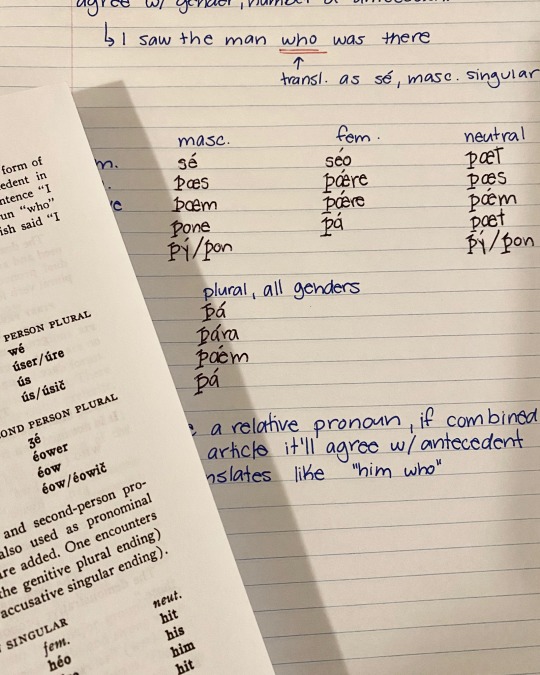 agree w/ gender, number of antecedent
↳ I saw the man who was there
↑
transl. as sé, masc. singular
masc. fem. neutral
m. sé séo þæt
þæs þǽre þæs
ve þæm þǽre þǽm
þone þá þæt
þý/þon þý/þon
plural, all genders
þá
þára
þǽm
þá
a relative pronoun, if combined
article it'll agree w/ antecedent
nslates like "him who"
form of
edent in
ntence "I
un "who"
ish said "I
PERSON PLURAL
wé
úser/úre
ús
ús/úsič
OND PERSON PLURAL
ʒé
éower
éow
éow/éowič
and second-person pro-
also used as pronominal
re added. One encounters
the genitive plural ending)
accusative singular ending).
SINGULAR neut.
fem. hit
héo his
him
hit